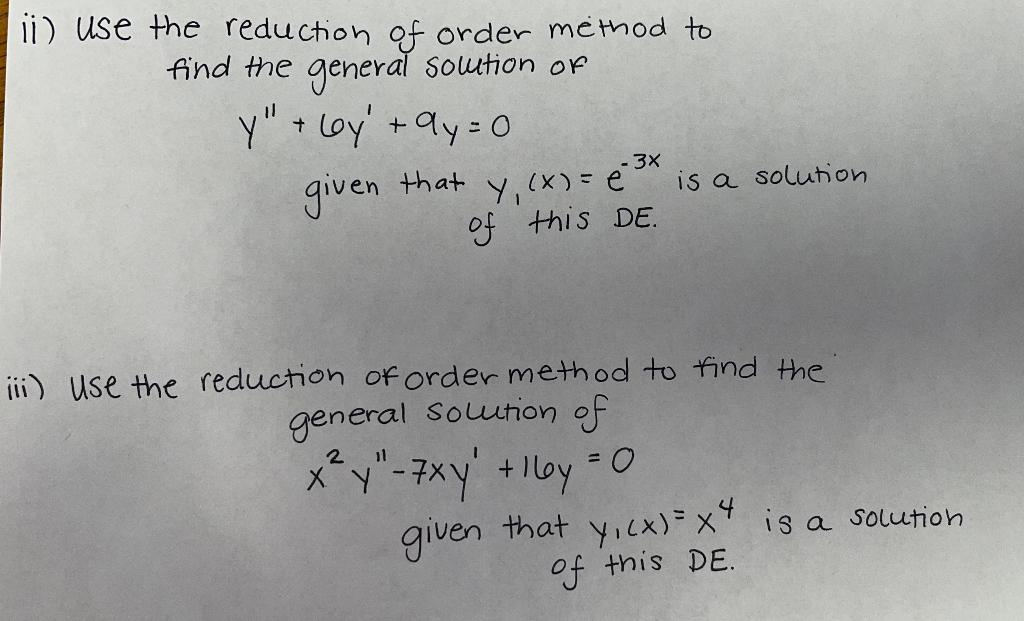 ii) use the reduction of order method to
find the general solution of
y" + 6y' + 9y = 0
given that y₁(x) = e⁻³ˣ is a solution
of this DE.
iii) use the reduction of order method to find the
general solution of
x²y" - 7xy' + 16y = 0
given that y₁(x) = x⁴ is a solution
of this DE.